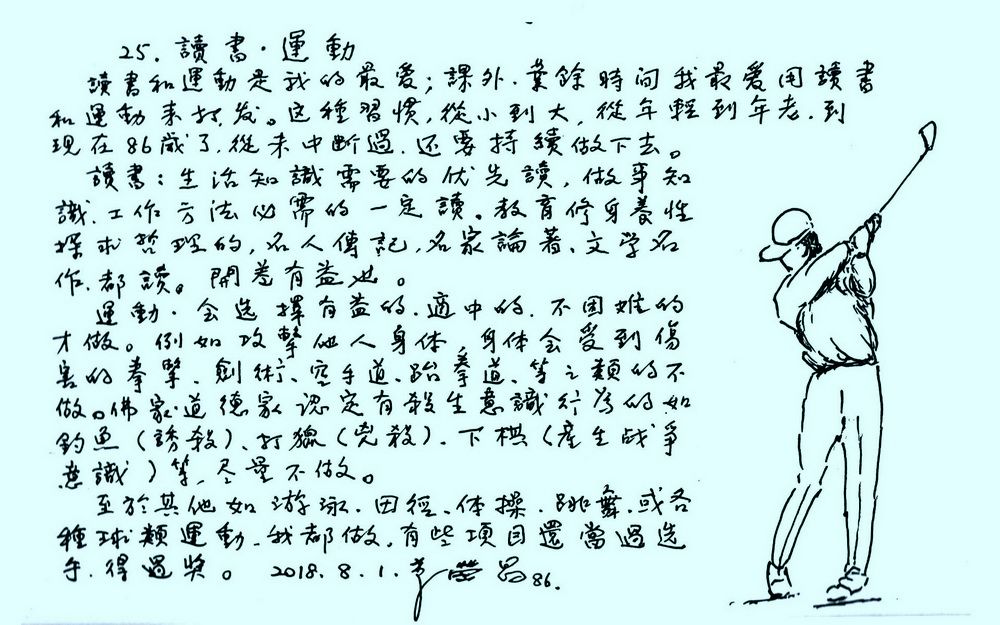 25. 讀書·運動
讀書和運動是我的最爱；課外、業餘時间我最爱用讀書
和運動来打发。这種習惯，從小到大，從年輕到年老，到
現在86歲了，從未中断過，还要持續做下去。
讀書：生活知識需要的优先讀，做事知
識、工作方法必需的一定讀。教育修身養性
探求哲理的，名人傳記，名家論著、文学名
作，都讀。開卷有益也。
運動·会选擇有益的、適中的、不困难的
才做。例如攻擊他人身体，身体会受到傷
害的拳擊、劍術、空手道、跆拳道、等之類的不
做。佛家道德家認定有殺生意識行為的如
釣魚（誘殺）、打獵（兇殺）、下棋（產生战爭
意識）等，尽量不做。
至於其他如游泳、田徑、体操、跳舞、或各
種球類運動，我都做，有些項目還當過选
手，得過奖。 2018.8.1. 86.